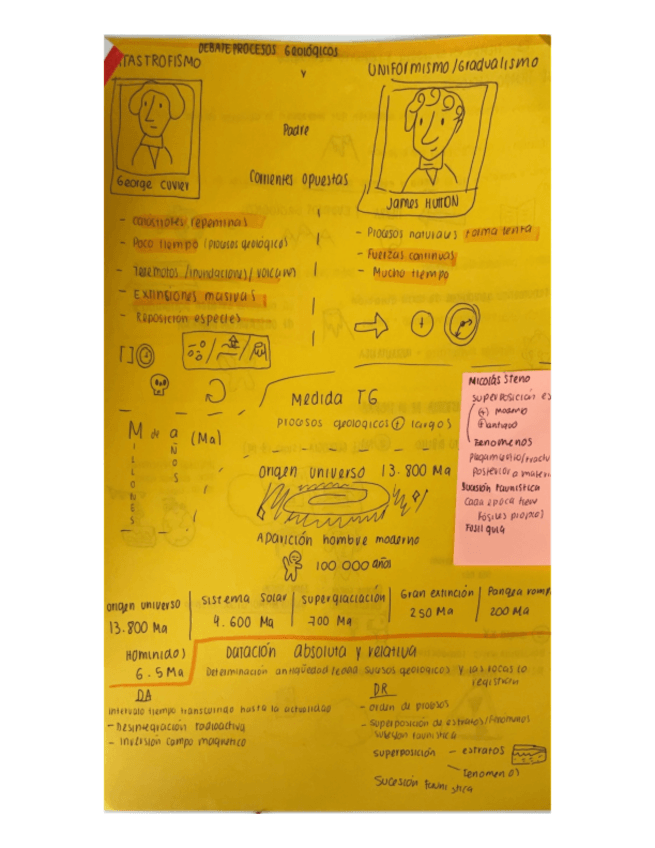 DEBATE PROCESOS GEOLÓGICOS
TASTROFISMO
y
UNIFORMISMO/Gradualismo
Padre
George CUVIER
Corrientes opuestas
James HUTTON
- catastrofes repentinas
- Poco tiempo (procesos geológicos)
- Terremotos /inundaciones/ volcanes
- Extinsiones masivas
- Reposición especies
- Procesos naturales forma lenta
- Fuerzas continuas
- Mucho tiempo
Medida TG
procesos geologicos (+) largos
M de a (Ma)
MILLONES
AÑOS
origen universo 13.800 Ma
Aparición hombre moderno
100 000 años
Nicolás Steno
superposición es
(+) moderno
(+) antiguo
Fenomenos
plegamiento/fractu
Posterior a materi
Sucesión faunistica
Cada epoca tiene
Fósiles propios
Fosil guia
origen universo
13.800 Ma
sistema solar
4.600 Ma
superglaciación
700 Ma
Gran extinción
250 Ma
Pangea romp
200 Ma
Hominidos
6.5 Ma
Datación absoluta y relativa
Determinación antigüedad sucesos geologicos y las rocas lo
registran
DA
intervalo tiempo transcurrido hasta la actualidad
- Desintegración radioactiva
- inversión campo magnetico
DR
- orden de procesos
- superposición de estratos/Fenómenos
sucesion faunistica
superposición - estratos
- fenomenos
Sucesión faunistica